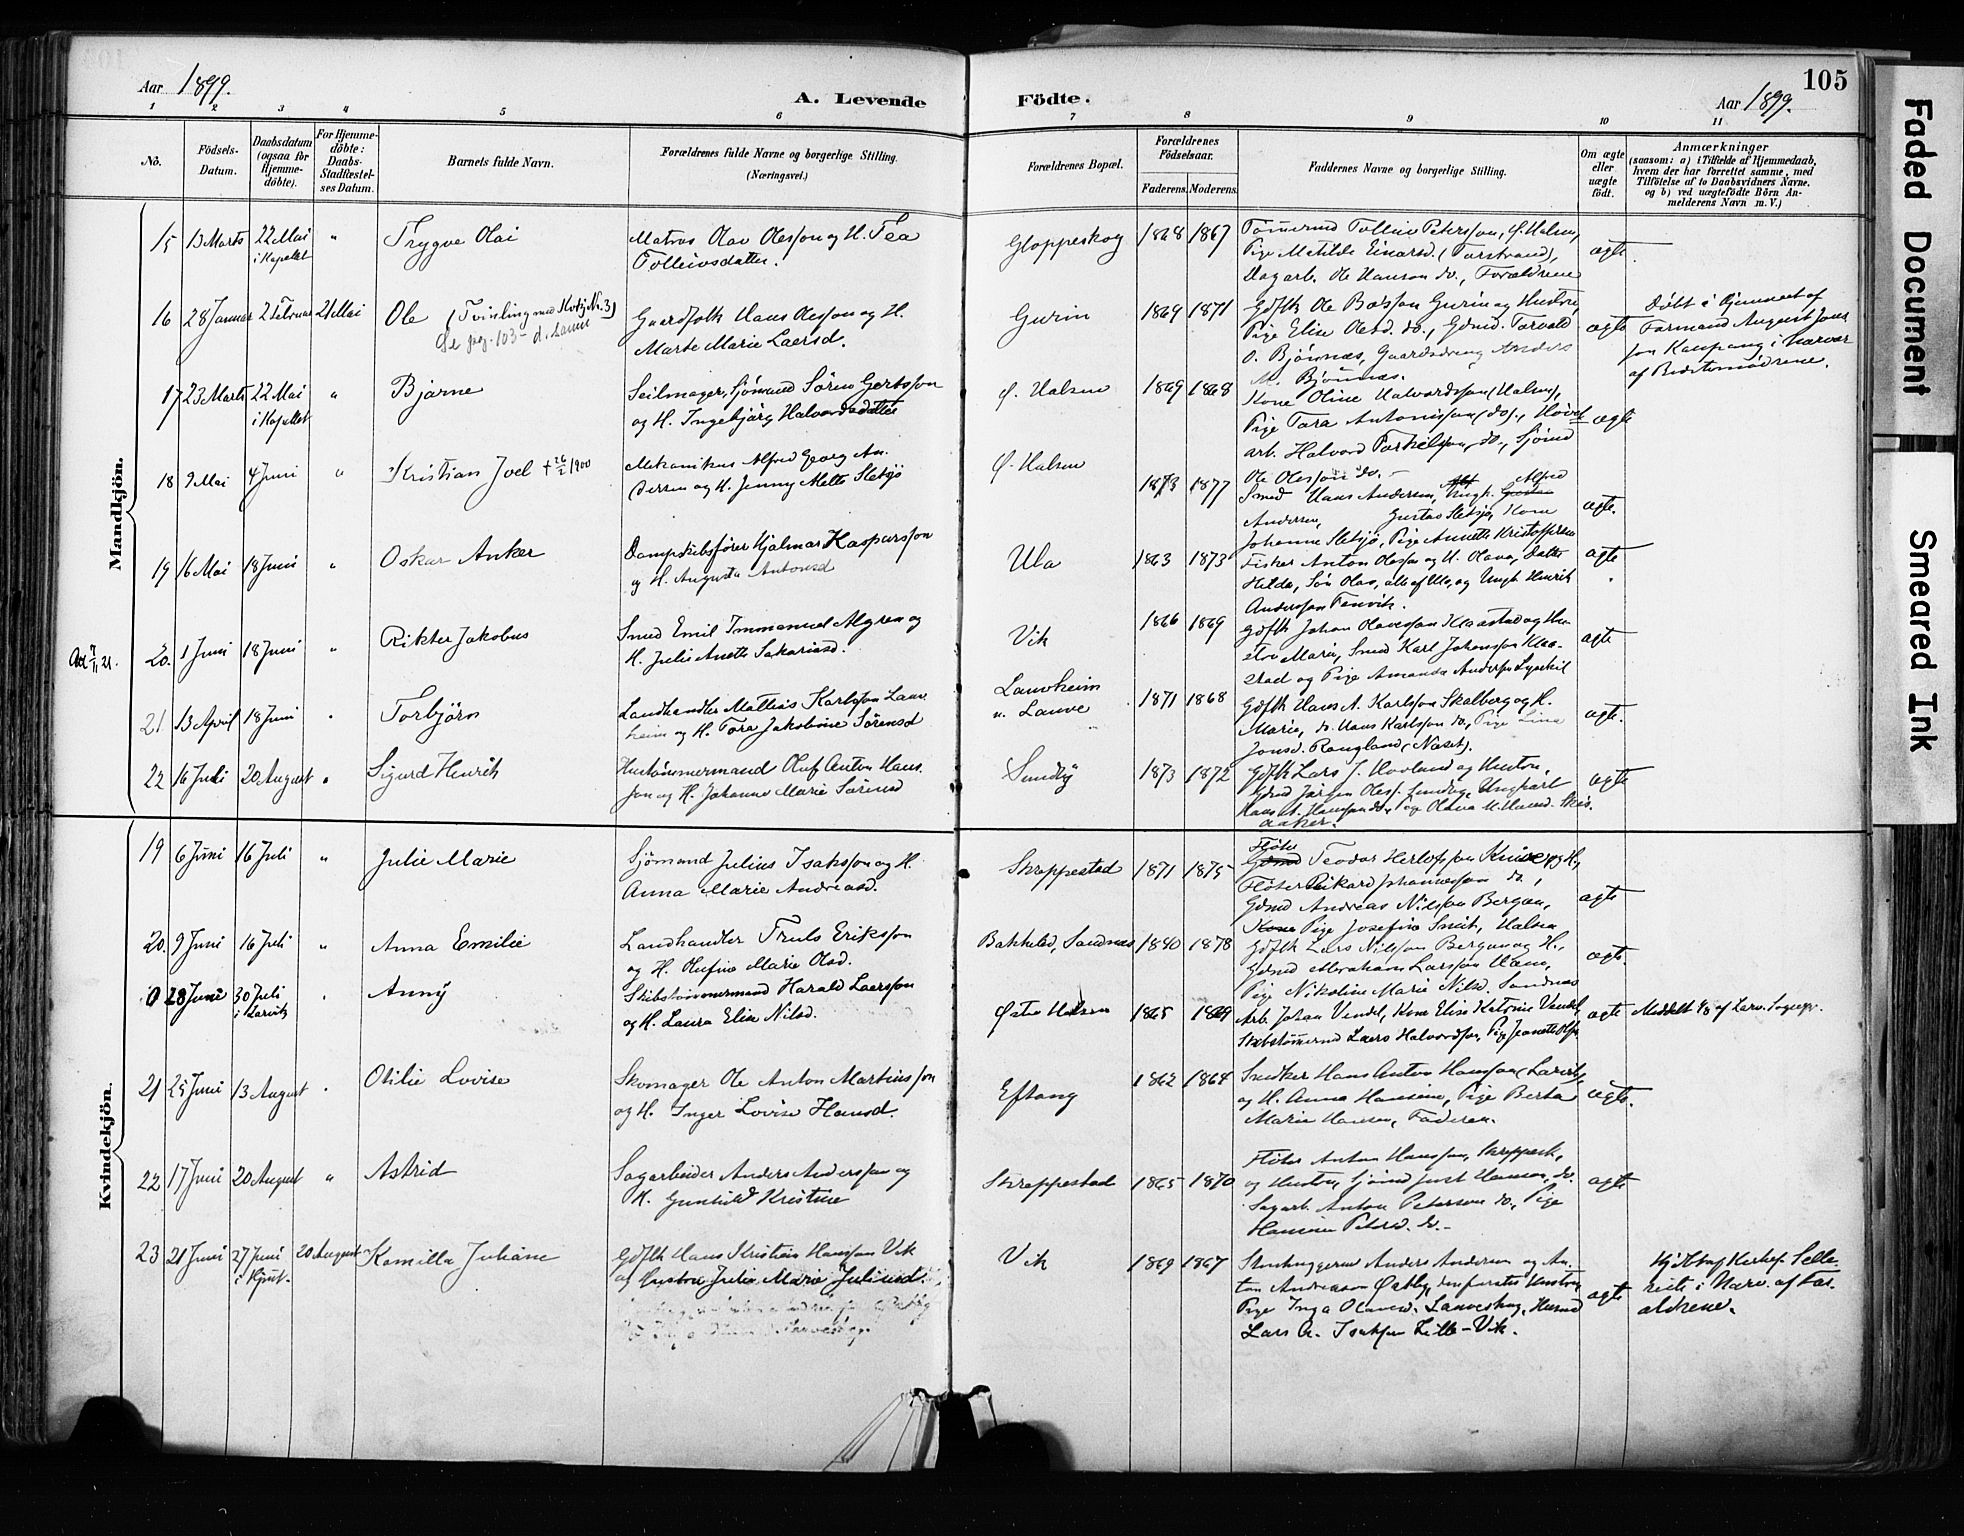 Aar 1899.
A. Levende
Födte.
Aar 1899.
105
1 2 3 4 5 6 7 8 9 10 11
No.
Födsels-
Datum.
Daabsdatum
(ogsaa for
Hjemme-
döbte).
For Hjemme-
döbte:
Daabs-
Stadfæstel-
ses Datum.
Barnets fulde Navn.
Forældrenes fulde Navne og borgerlige Stilling.
(Næringsvei.)
Forældrenes Bopæl.
Forældrenes
Födselsaar.
Faderens. Moderens.
Faddernes Navne og borgerlige Stilling.
Om ægte
eller
uægte
födt.
Anmærkninger
(saasom: a) i Tilfælde af Hjemmedaab,
hvem der har forrettet samme, med
Tilföielse af to Daabsvidners Navne,
og b) ved uægtefödte Börn An-
melderens Navn m. V.)
Mandkjön.
15 13 Marts 22 Mai " Trygve Olai
i Kapellet
Matros Olav Olesson og H. Tea
Tolleivsdatter.
Gloppeskog 1868 1867
Tømmermd Tollein Peterson, Ø. Halsen,
Pige Matilde Einarsd. (Torstrand),
Dagarb. Ole Hanson do., Forældrene
ægte
16 28 Januar 2 Februar 21 Mai Ole (Tvinling med Kvkj. Nr. 3)
Se pag. 103 -
Gaardfolk Hans Olesson og H.
Marte Marie Laersd.
Gurin 1869 1871
Gdfk Ole Gurin og Hustru,
Pige Elise Olesd. do., Gdmd. Torvald
O. Bjönnes, Gaardsdreng Anders
M. Bjönnes.
ægte
Döbt i Hjemmet af
Formand August Jons-
son Kaupang i Nærvær
af Bedstemödrene.
17 23 Marts 22 Mai " Bjarne
i Kapellet
Seilmager, Sjömand Sören Gertsson
og H. Ingebjörg Halvorsdatter
Ø. Halsen 1869 1868
Kone Oline Halvordsson (Halsen),
Pige Tora Antonisson (do)., Hövl-
arb. Halvord Torkelsson, do., Sjömd
Ole Olesson do. -
ægte
18 9 Mai 4 Juni " Kristian Joel + 26/2 1900
Mekanikus Alfred Georg An-
dersen og H. Jenny Mette Sletsjö
Ø. Halsen 1873 1877
Smed Hans Andersen, Ungk. Alfred
Andersen, Gustav Sletsjö, Kone
Johanne Sletsjö, Pige Annette Kristoffersen
ægte.
19 16 Mai 18 Juni " Oskar Anker
Dampskibsförer Hjalmar Kaspersson
og H. Augusta Antonsd
Ula 1863 1873
Fisker Anton Olesson og H. Olava, Datter
Hilda, Sön Olav, alle af Ula, og Ungk Henrik
Andersson Fenvik.
ægte
20. 1 Juni 18 Juni " Rikter Jakobus
Smed Emil Immanuel Algren og
H. Julie Anette Sakariasd.
Vik 1866 1869
Gdfk Johan Olavesson Klaastad og Hu-
stru Marie, Smed Karl Johansson Klaa-
stad og Pige Amanda Andersen Lysekil
ægte
21 13 April 18 Juni " Torbjörn
Landhandler Mattias Karlsson Lauv-
heim og H. Tora Jakobine Sörensd
Lauvheim
n. Lauve
1871 1868
Gdfk Hans A. Karlsson Skalberg og H.
Marie, do. Hans Karlsson do., Pige Lina
Jonsd. Rangland (Næset).
ægte.
22 16 Juli 20 August " Sigurd Henrik
Hustömmermand Oluf Anton Hans-
son og H. Johanne Marie Sörensd
Sundby 1873 1872
Gdfk Lars J. Hovland og Hustru,
Gdmd Jörgen Oless. Sundby, Ungkarl
Hans A. Hansson do., Pige Olava M. Skis-
aaker.
ægte
Kvindekjön.
19 6 Juni 16 Juli " Julie Marie
Sjömand Julius Isaksson og H.
Anna Marie Andreasd.
Skreppestad 1871 1875
Flöter
Teodor Herlofsson og H,
Flöter Rikard Johannesson do.,
Gdmd Andreas Nilsson Bergan,
Pige Josefine Smit, Halsen
ægte
20. 9 Juni 16 Juli " Anna Emilie
Landhandler Truls Eriksson
og H. Olufine Marie Olsd.
Bakkeled, Sandnæs 1840 1878
Gdfk Lars Nilsson Bergan og H.,
Gdmd Abraham Larsson Hæm,
Pige Nikoline Marie Nilsd. Sandnæs
ægte.
0 28 Juni 30 Juli " Anny
i Larvik
Skibstömmermand Harald Laersson
og H. Laura Elise Nilsd.
Østre Halsen 1865 1869
Arb. Johan Vendel, Kone Elise Katrine Vendel,
Skibstömmd Laers Halvordson, Pige Jeanette Ols.
ægte
Meddelt 1/8 af Larv. Sognepr.
21 25 Juni 13 August " Otilie Lovise
Skomager Ole Anton Martinsson
og H. Inger Lovise Hansd.
Eftang 1862 1864
Snedker Hans Anton Hansson (Larvik),
og H. Anna Hansine, Pige Berta
Marie Hansen, Faderen.
ægte.
22 17 Juni 20 August " Astrid
Sagarbeider Anders Andersson og
H. Gunhild Kristine
Skreppestad 1865 1870
Flöter Anton Hansson, Skreppest.,
og Hustru, Sjömd Just Hansen, do.
Sagarb. Anton Peterson do., Pige
Hansine Petersd. do. -
ægte
23 21 Juni 27 Juni 20 August Kamilla Juliane
i Hjemt.
Gdfk Hans Kristian Hansson Vik
og Hustru Julie Marie Juliusd.
Vik 1869 1867
Stenhuggerne Anders Andersen og An-
ton Andreassen Østby, den förstes Hustru,
Pige Inga Olavesd. Lauveskog, Husmd
Lars A. Isaksen Lille-Vik.
ægte
Hjdöbt af Kirkes. Selle-
i Nærv. af For-
ældrene.
Faded Document
Smeared Ink